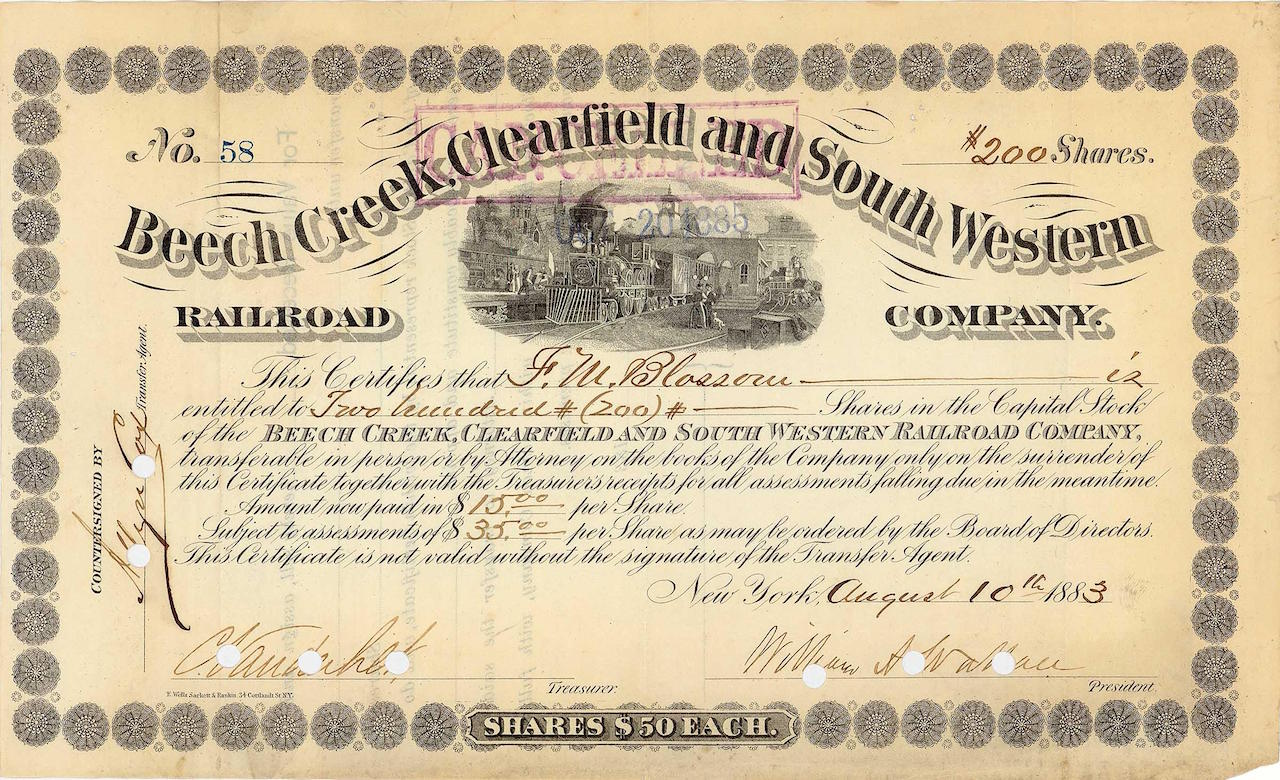 No. 58
$200 Shares.
Beech Creek, Clearfield and South Western
RAILROAD COMPANY.
20 1885
This Certifies that F. M. Blossom is
entitled to Two hundred # (200) # Shares in the Capital Stock
of the BEECH CREEK, CLEARFIELD AND SOUTH WESTERN RAILROAD COMPANY,
transferable in person or by Attorney on the books of the Company only on the surrender of
this Certificate together with the Treasurers receipts for all assessments falling due in the meantime.
Amount now paid in $15.00 per Share.
Subject to assessments of $35.00 per Share as may be ordered by the Board of Directors.
This Certificate is not valid without the signature of the Transfer Agent.
New York, August 10th 1883
COUNTERSIGNED BY
Cox Transfer Agent.
C Vanderbilt
Treasurer.
William A Wallace
President.
E. Wells Sackett & Rankin. 54 Cortlandt St N.Y.
SHARES $50 EACH.